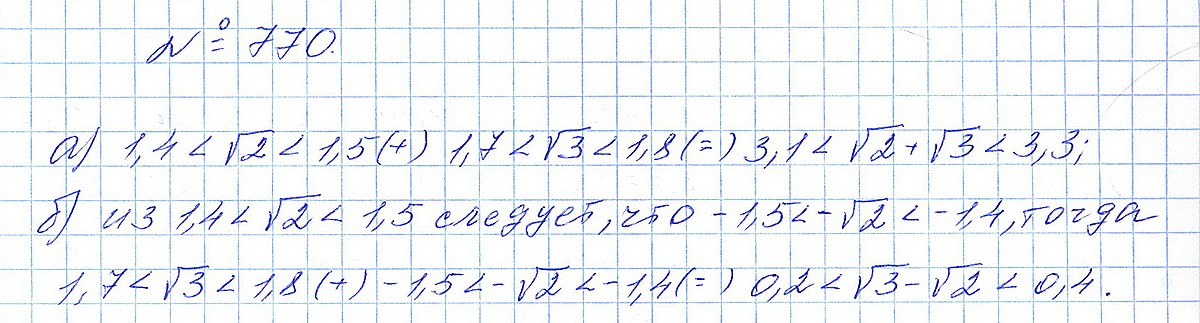 № 770.
а) 1,4 < √2 < 1,5 (+) 1,7 < √3 < 1,8 (=) 3,1 < √2 + √3 < 3,3;
б) из 1,4 < √2 < 1,5 следует, что -1,5 < -√2 < -1,4, тогда
1,7 < √3 < 1,8 (+) -1,5 < -√2 < -1,4 (=) 0,2 < √3 - √2 < 0,4.